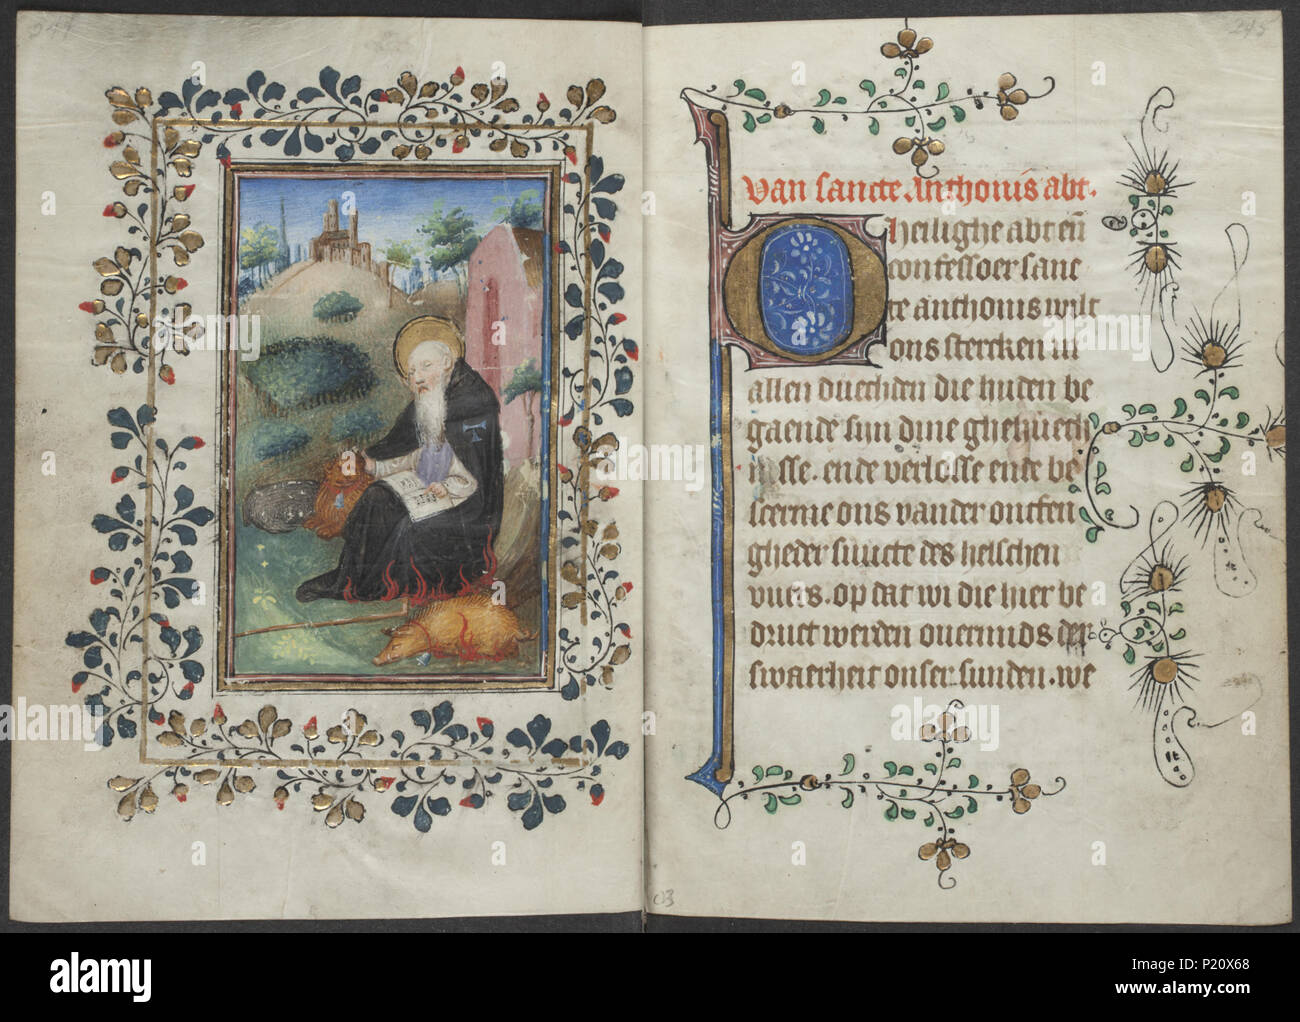 244
245
Van sancte Anthonis abt.
O heilighe abt en̄
confessoer sanc
te anthonis wilt
ons stercken in
allen duechden die huden be
gaende sijn dine ghehuech
nisse. ende verlosse ende be
scerme ons vander onrfen
gheder siucte des helschen
vuers. op dat wi die hier be
druct werden ouermids der
swaerheit onser sunden. we
alamy
a
alamy
Image ID: P20X68
www.alamy.com